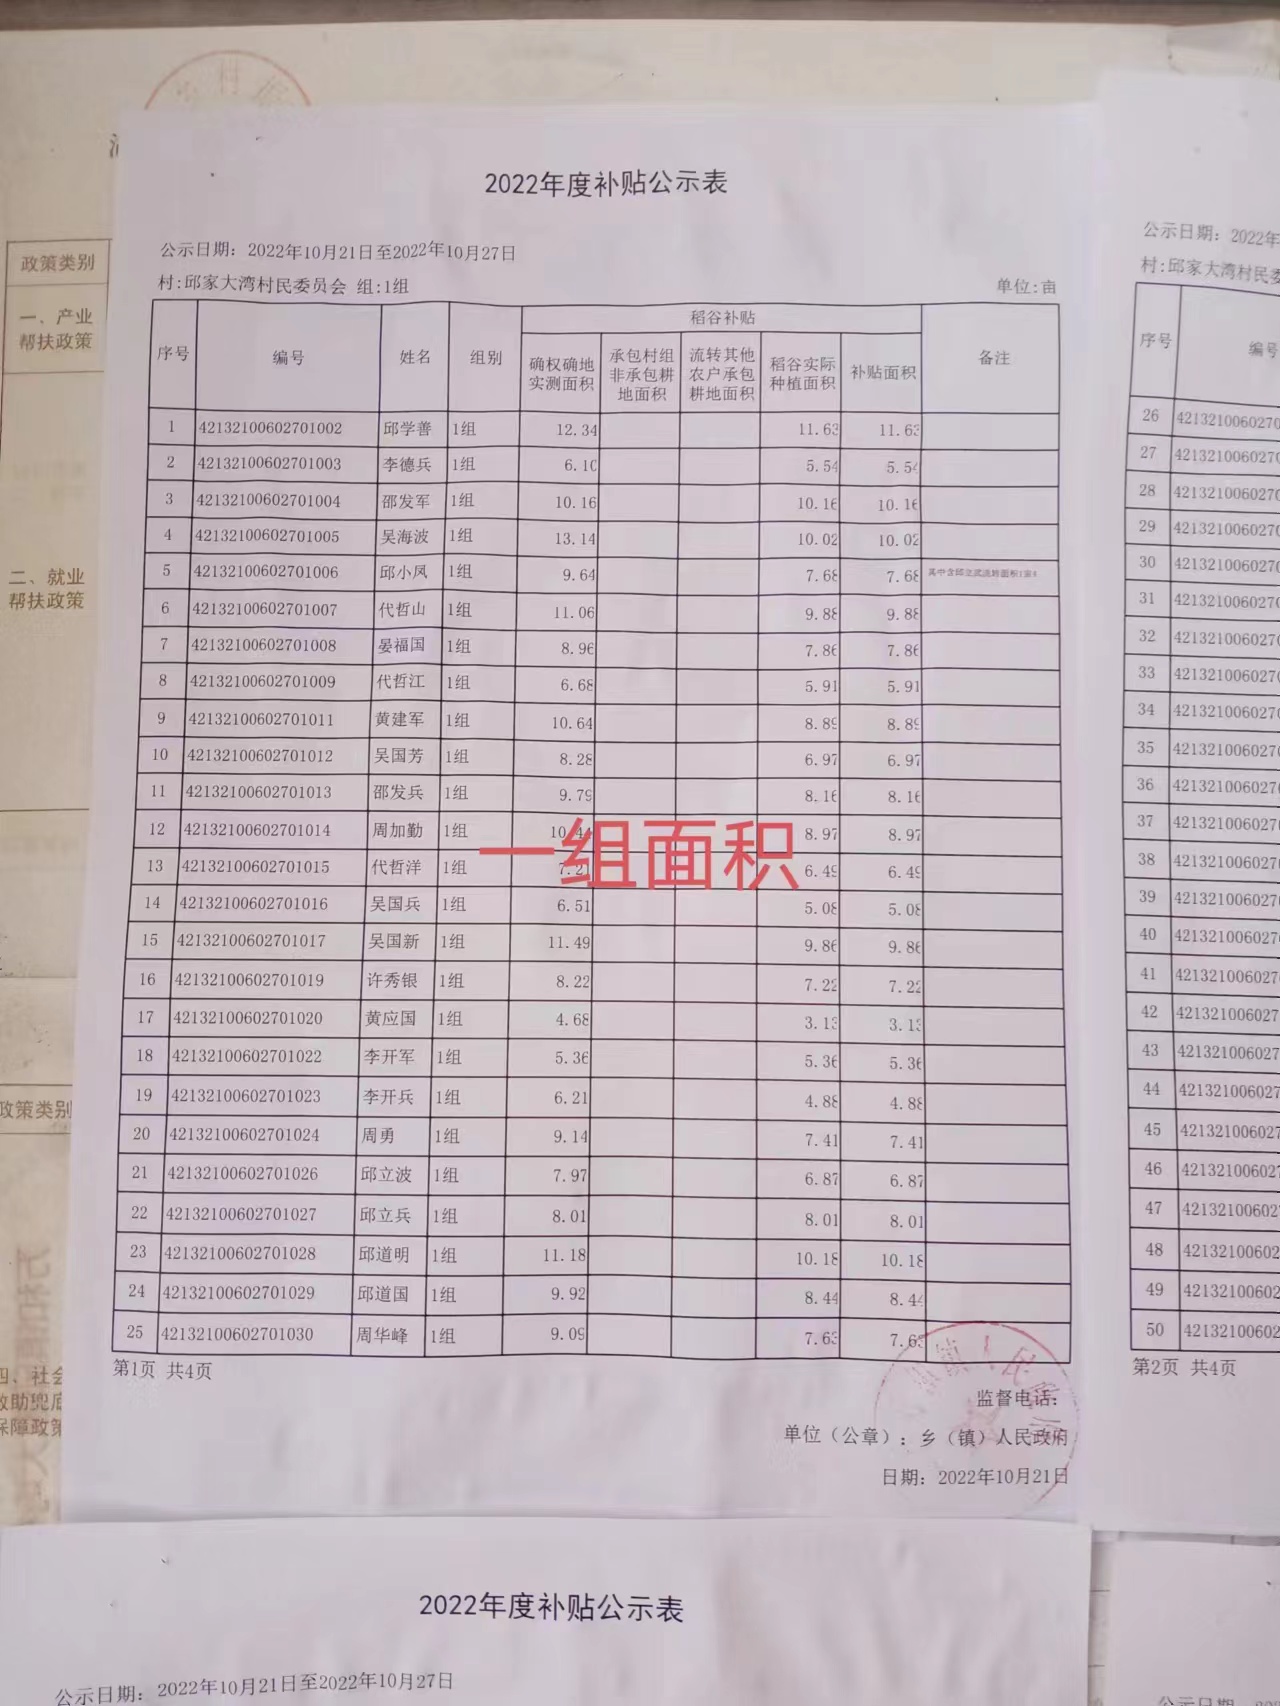 2022年度补贴公示表
公示日期：2022年10月21日至2022年10月27日
村:邱家大湾村民委员会 组:1组 单位:亩
序号 编号 姓名 组别 稻谷补贴 备注
确权确地实测面积 承包村组非承包耕地面积 流转其他农户承包耕地面积 稻谷实际种植面积 补贴面积
1 42132100602701002 邱学善 1组 12.34 11.63 11.63
2 42132100602701003 李德兵 1组 6.10 5.54 5.54
3 42132100602701004 邵发军 1组 10.16 10.16 10.16
4 42132100602701005 吴海波 1组 13.14 10.02 10.02
5 42132100602701006 邱小凤 1组 9.64 7.68 7.68 其中含邱立武流转面积1亩
6 42132100602701007 代哲山 1组 11.06 9.88 9.88
7 42132100602701008 晏福国 1组 8.96 7.86 7.86
8 42132100602701009 代哲江 1组 6.68 5.91 5.91
9 42132100602701011 黄建军 1组 10.64 8.89 8.89
10 42132100602701012 吴国芳 1组 8.28 6.97 6.97
11 42132100602701013 邵发兵 1组 9.79 8.16 8.16
12 42132100602701014 周加勤 1组 10.44 8.97 8.97
一组面积
13 42132100602701015 代哲洋 1组 7.21 6.49 6.49
14 42132100602701016 吴国兵 1组 6.51 5.08 5.08
15 42132100602701017 吴国新 1组 11.49 9.86 9.86
16 42132100602701019 许秀银 1组 8.22 7.22 7.22
17 42132100602701020 黄应国 1组 4.68 3.13 3.13
18 42132100602701022 李开军 1组 5.36 5.36 5.36
19 42132100602701023 李开兵 1组 6.21 4.88 4.88
20 42132100602701024 周勇 1组 9.14 7.41 7.41
21 42132100602701026 邱立波 1组 7.97 6.87 6.87
22 42132100602701027 邱立兵 1组 8.01 8.01 8.01
23 42132100602701028 邱道明 1组 11.18 10.18 10.18
24 42132100602701029 邱道国 1组 9.92 8.44 8.44
25 42132100602701030 周华峰 1组 9.09 7.63 7.63
第1页 共4页
监督电话：
单位（公章）：乡（镇）人民政府
日期：2022年10月21日
政策类别
一、产业
帮扶政策
二、就业
帮扶政策
政策类别
四、社会
救助兜底
保障政策
公示日期：2022年
村:邱家大湾村民委
序号 编号
26 4213210060270
27 4213210060270
28 4213210060270
29 4213210060270
30 4213210060270
31 4213210060270
32 4213210060270
33 4213210060270
34 4213210060270
35 4213210060270
36 4213210060270
37 4213210060270
38 4213210060270
39 4213210060270
40 4213210060270
41 4213210060270
42 421321006027
43 421321006027
44 421321006027
45 421321006027
46 421321006027
47 421321006027
48 42132100602
49 42132100602
50 42132100602
第2页 共4页
2022年度补贴公示表
公示日期：2022年10月21日至2022年10月27日
公示日期：202